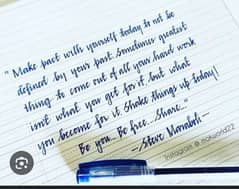 "Make pact with yourself today to not be
defined by your past. Sometimes greatest
thing to come out of all your hard work
isn't what you get for it, but what
you become for it. Shake things up today!
Be You.. Be free.. Share.."
~Steve Maraboli~
Instagram @